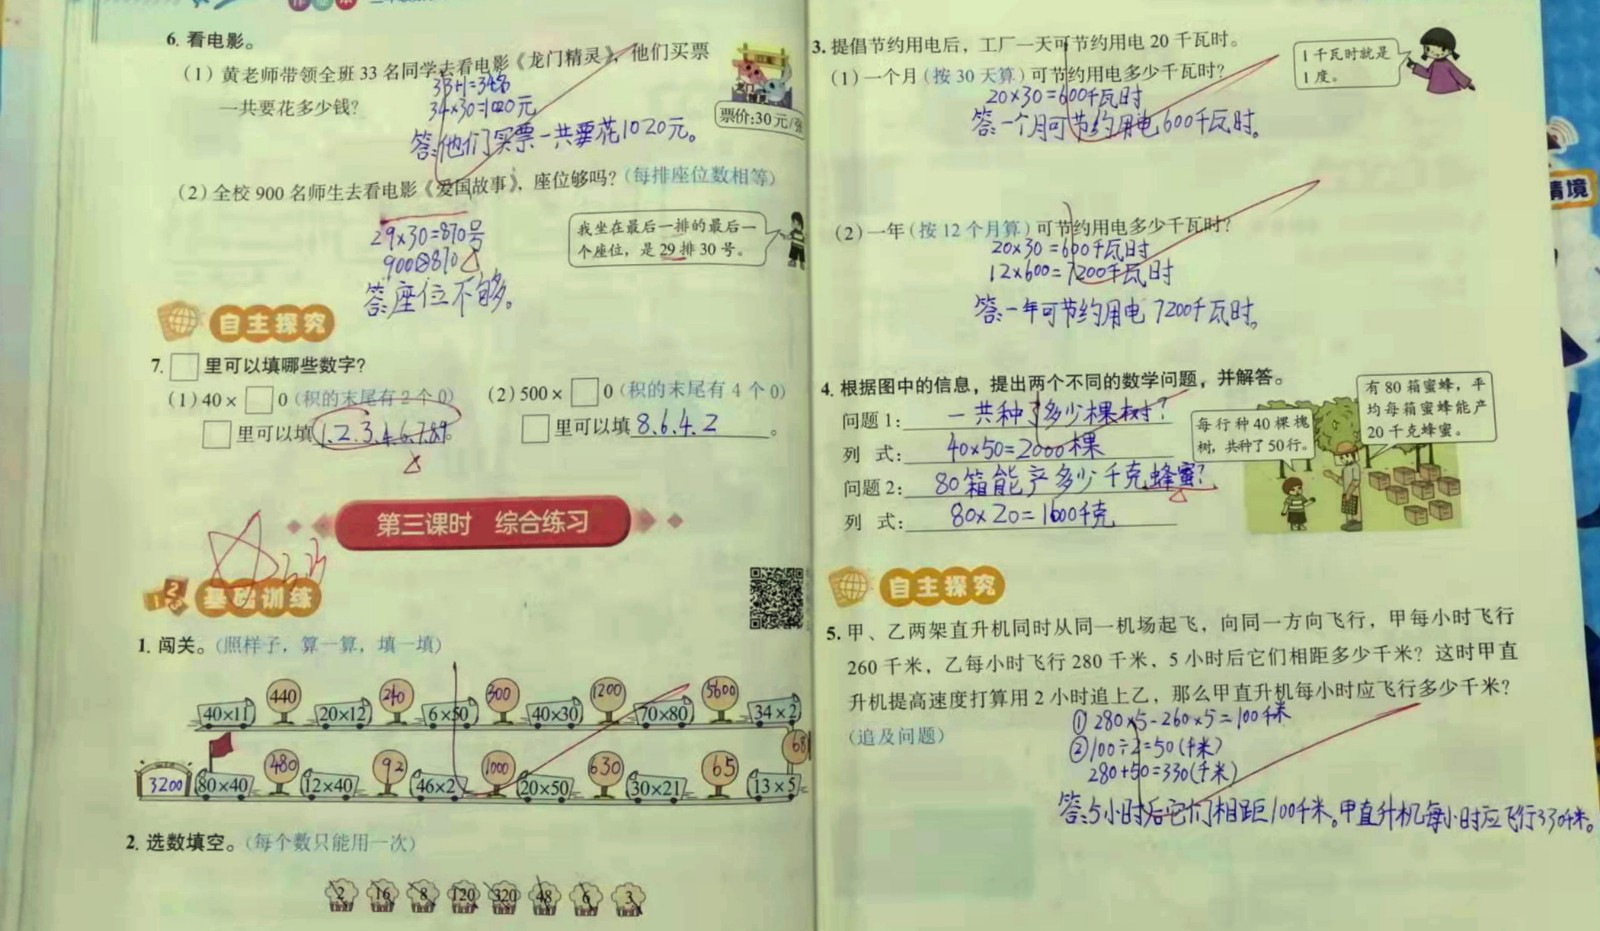 6. 看电影。
(1) 黄老师带领全班 33 名同学去看电影《龙门精灵》，他们买票
一共要花多少钱?
33+1=34名
34×30=1020元
答:他们买票一共要花1020元。
票价:30元/张
(2) 全校 900 名师生去看电影《爱国故事》，座位够吗? (每排座位数相等)
29×30=870号
900>870
答:座位不够。
我坐在最后一排的最后一
个座位，是 29 排 30 号。
自主探究
7. □里可以填哪些数字?
(1) 40×□0 (积的末尾有 2 个 0)
□里可以填1.2.3.4.6.7.8.9。
(2) 500×□0 (积的末尾有 4 个 0)
□里可以填8.6.4.2。
第三课时 综合练习
基础训练
1. 闯关。(照样子，算一算，填一填)
440 240 300 1200 5600
40×11 20×12 6×50 40×30 70×80 34×2
480 92 1000 630 65 68
3200 80×40 12×40 46×2 20×50 30×21 13×5
2. 选数填空。(每个数只能用一次)
2 16 8 120 320 48 6 3
3. 提倡节约用电后，工厂一天可节约用电 20 千瓦时。
(1) 一个月 (按 30 天算) 可节约用电多少千瓦时?
20×30=600千瓦时
答:一个月可节约用电600千瓦时。
1 千瓦时就是
1 度。
(2) 一年 (按 12 个月算) 可节约用电多少千瓦时?
20×30=600千瓦时
12×600=7200千瓦时
答:一年可节约用电7200千瓦时。
4. 根据图中的信息，提出两个不同的数学问题，并解答。
问题 1: 一共种了多少棵树?
列 式: 40×50=2000棵
问题 2: 80箱能产多少千克蜂蜜?
列 式: 80×20=1600千克
每行种 40 棵槐
树，共种了 50 行。
有 80 箱蜜蜂，平
均每箱蜜蜂能产
20 千克蜂蜜。
自主探究
5. 甲、乙两架直升机同时从同一机场起飞，向同一方向飞行，甲每小时飞行
260 千米，乙每小时飞行 280 千米，5 小时后它们相距多少千米? 这时甲直
升机提高速度打算用 2 小时追上乙，那么甲直升机每小时应飞行多少千米?
(追及问题)
①280×5-260×5=100千米
②100÷2=50(千米)
280+50=330(千米)
答:5小时后它们相距100千米。甲直升机每小时应飞行330千米。
情境